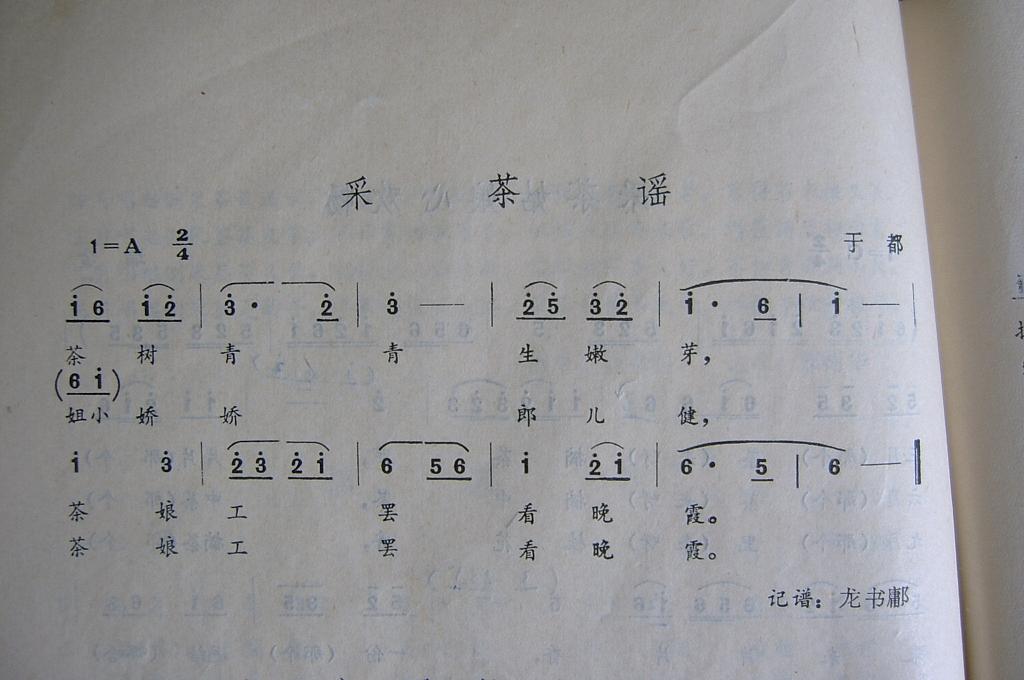 采茶谣
1=A 2/4 于都
i̇ 6 i̇ 2̇ | 3̇ · 2̇ | 3̇ — | 2̇ 5̇ 3̇ 2̇ | i̇ · 6 | i̇ — |
茶 树 青 青 生 嫩 芽，
(6 i̇)
姐小 娇 娇 郎 儿 健，
i̇ 3̇ | 2̇ 3̇ 2̇ i̇ | 6 5 6 | i̇ 2̇ i̇ | 6 · 5 | 6 — ‖
茶 娘 工 罢 看 晚 霞。
茶 娘 工 罢 看 晚 霞。
记谱：龙书郦